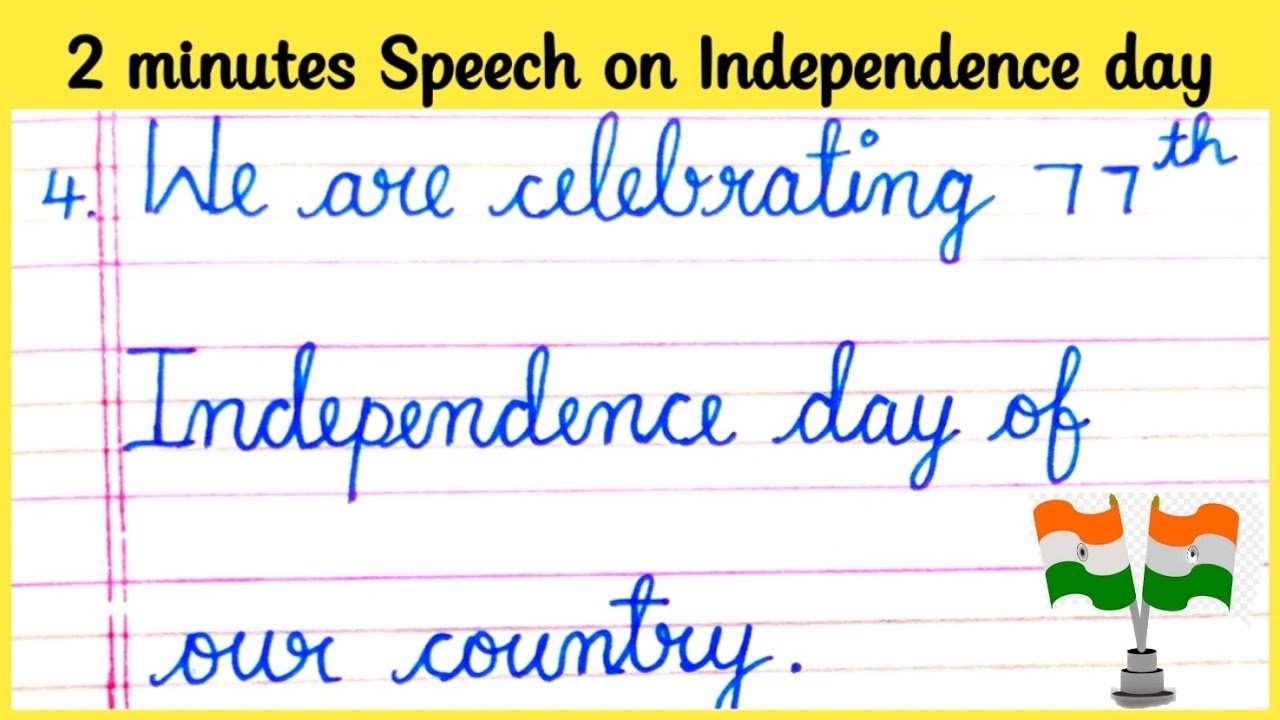 2 minutes Speech on Independence day
4. We are celebrating 77th
Independence day of
our country.